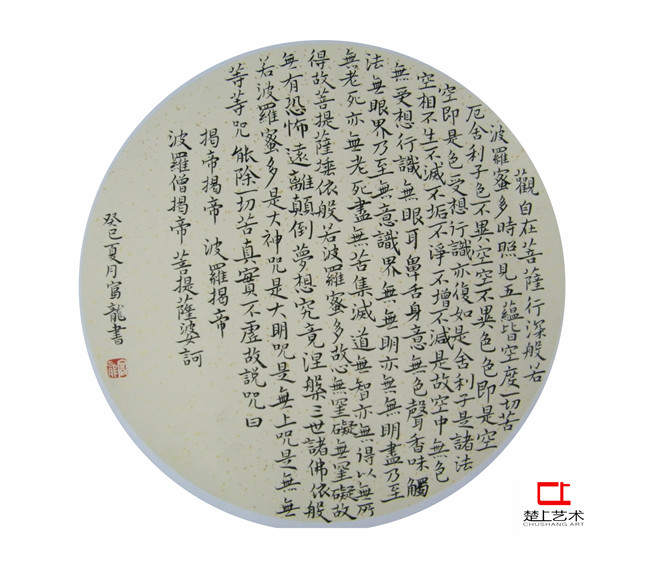 觀自在菩薩行深般若
波羅蜜多時照見五蘊皆空度一切苦
厄舍利子色不異空空不異色色即是空
空即是色受想行識亦復如是舍利子是諸法
空相不生不滅不垢不淨不增不減是故空中無色
無受想行識無眼耳鼻舌身意無色聲香味觸
法無眼界乃至無意識界無無明亦無無明盡乃至
無老死亦無老死盡無苦集滅道無智亦無得以無所
得故菩提薩埵依般若波羅蜜多故心無罣礙無罣礙故
無有恐怖遠離顛倒夢想究竟涅槃三世諸佛依般
若波羅蜜多是大神咒是大明咒是無上咒是無無
等等咒能除一切苦真實不虛故說咒曰
揭帝揭帝 波羅揭帝
波羅僧揭帝 菩提薩婆訶
癸巳夏月富龍書
楚上艺术
CHUSHANG ART